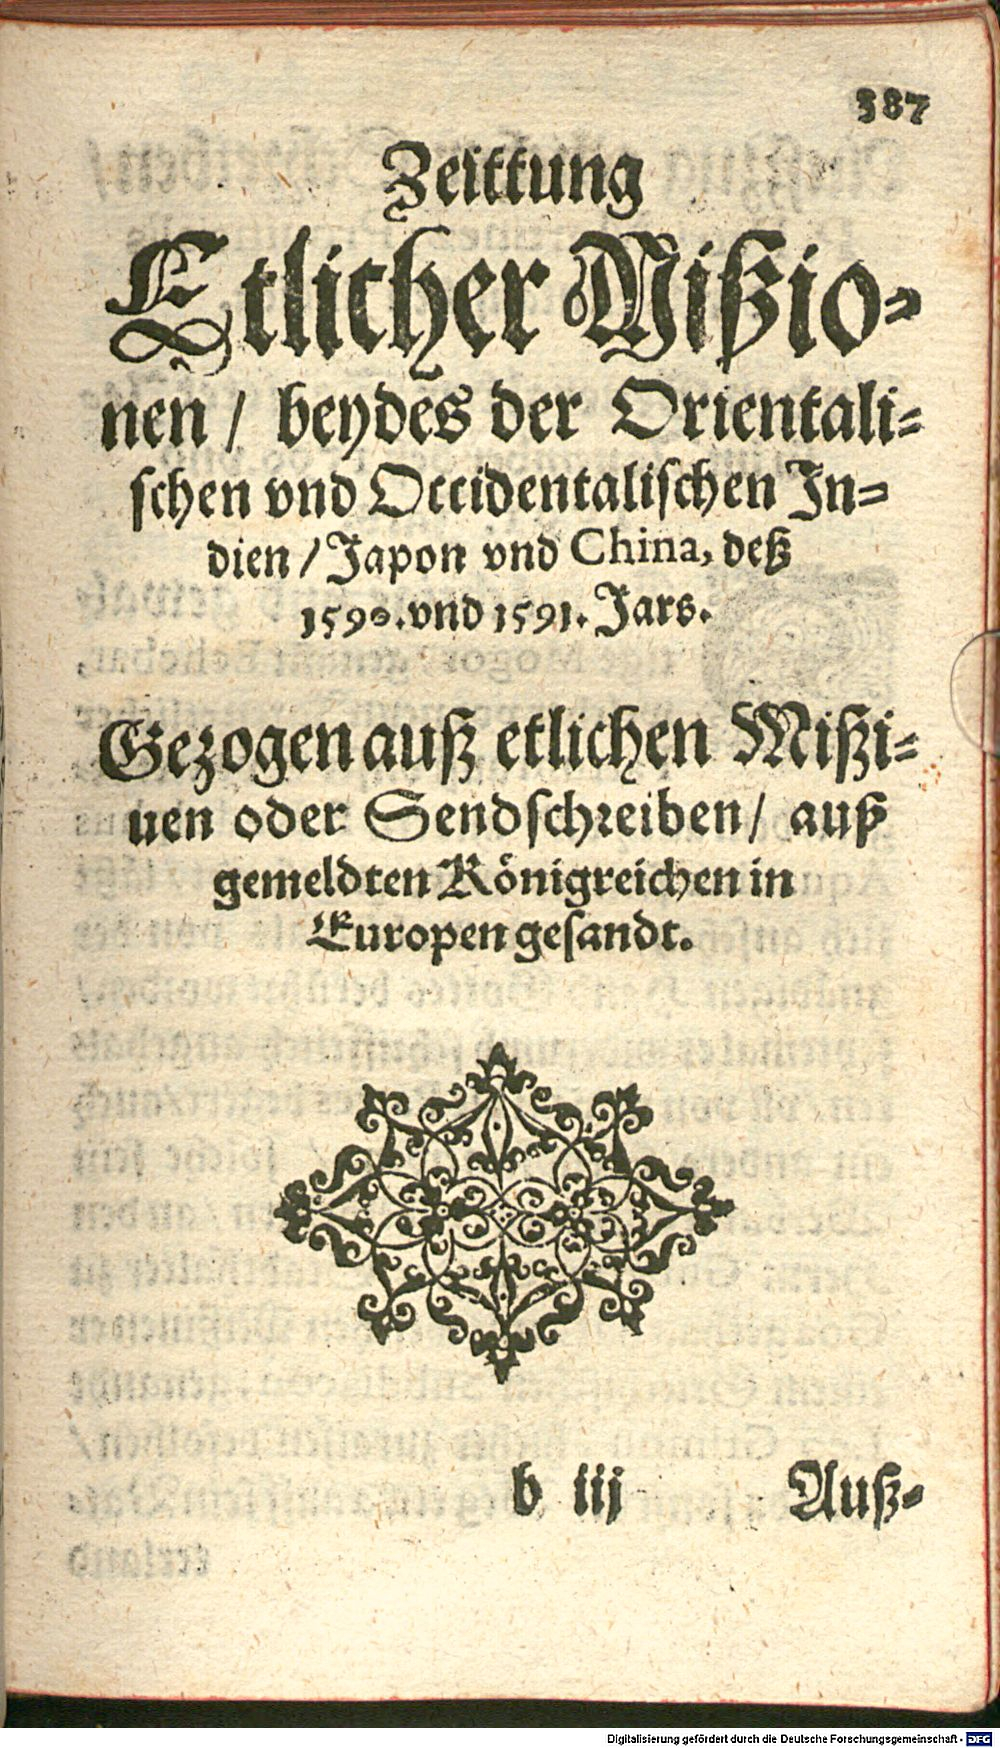 387
Zeittung
Etlicher Mißio-
nen / beydes der Orientali-
schen vnd Occidentalischen In-
dien / Japon vnd China, deß
1590. vnd 1591. Jars.
Gezogen auß etlichen Mißi-
uen oder Sendschreiben / auß
gemeldten Königreichen in
Europen gesandt.
b iij Auß-
Digitalisierung gefördert durch die Deutsche Forschungsgemeinschaft - DFG